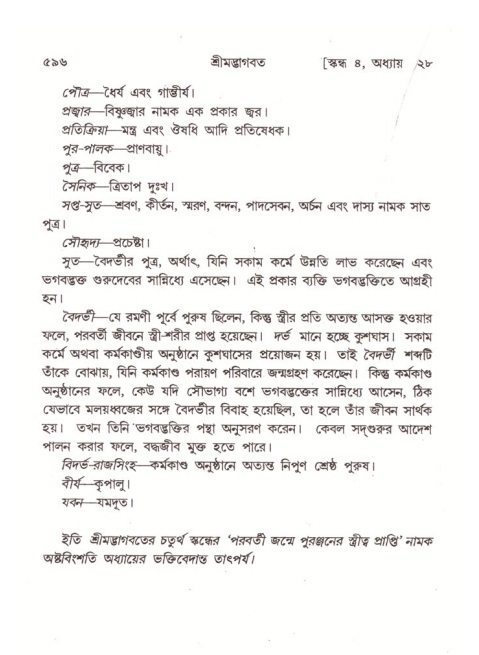 ৫৯৬ শ্রীমদ্ভাগবত [স্কন্ধ ৪, অধ্যায় ২৮
পৌত্র—ধৈর্য এবং গাম্ভীর্য।
প্রজ্বার—বিষ্ণুজ্বার নামক এক প্রকার জ্বর।
প্রতিক্রিয়া—মন্ত্র এবং ঔষধি আদি প্রতিষেধক।
পুর-পালক—প্রাণবায়ু।
পুত্র—বিবেক।
সৈনিক—ত্রিতাপ দুঃখ।
সপ্ত-সুত—শ্রবণ, কীর্তন, স্মরণ, বন্দন, পাদসেবন, অর্চন এবং দাস্য নামক সাত
পুত্র।
সৌহৃদ্য—প্রচেষ্টা।
সুত—বৈদর্ভীর পুত্র, অর্থাৎ, যিনি সকাম কর্মে উন্নতি লাভ করেছেন এবং
ভগবদ্ভক্ত গুরুদেবের সান্নিধ্যে এসেছেন। এই প্রকার ব্যক্তি ভগবদ্ভক্তিতে আগ্রহী
হন।
বৈদর্ভী—যে রমণী পূর্বে পুরুষ ছিলেন, কিন্তু স্ত্রীর প্রতি অত্যন্ত আসক্ত হওয়ার
ফলে, পরবর্তী জীবনে স্ত্রী-শরীর প্রাপ্ত হয়েছেন। দর্ভ মানে হচ্ছে কুশঘাস। সকাম
কর্মে অথবা কর্মকাণ্ডীয় অনুষ্ঠানে কুশঘাসের প্রয়োজন হয়। তাই বৈদর্ভী শব্দটি
তাঁকে বোঝায়, যিনি কর্মকাণ্ড পরায়ণ পরিবারে জন্মগ্রহণ করেছেন। কিন্তু কর্মকাণ্ড
অনুষ্ঠানের ফলে, কেউ যদি সৌভাগ্য বশে ভগবদ্ভক্তের সান্নিধ্যে আসেন, ঠিক
যেভাবে মলয়ধ্বজের সঙ্গে বৈদর্ভীর বিবাহ হয়েছিল, তা হলে তাঁর জীবন সার্থক
হয়। তখন তিনি ভগবদ্ভক্তির পন্থা অনুসরণ করেন। কেবল সদ্‌গুরুর আদেশ
পালন করার ফলে, বদ্ধজীব মুক্ত হতে পারে।
বিদর্ভ-রাজসিংহ—কর্মকাণ্ড অনুষ্ঠানে অত্যন্ত নিপুণ শ্রেষ্ঠ পুরুষ।
বীর্য—কৃপালু।
যবন—যমদূত।
ইতি শ্রীমদ্ভাগবতের চতুর্থ স্কন্ধের 'পরবর্তী জন্মে পুরঞ্জনের স্ত্রীত্ব প্রাপ্তি' নামক
অষ্টবিংশতি অধ্যায়ের ভক্তিবেদান্ত তাৎপর্য।